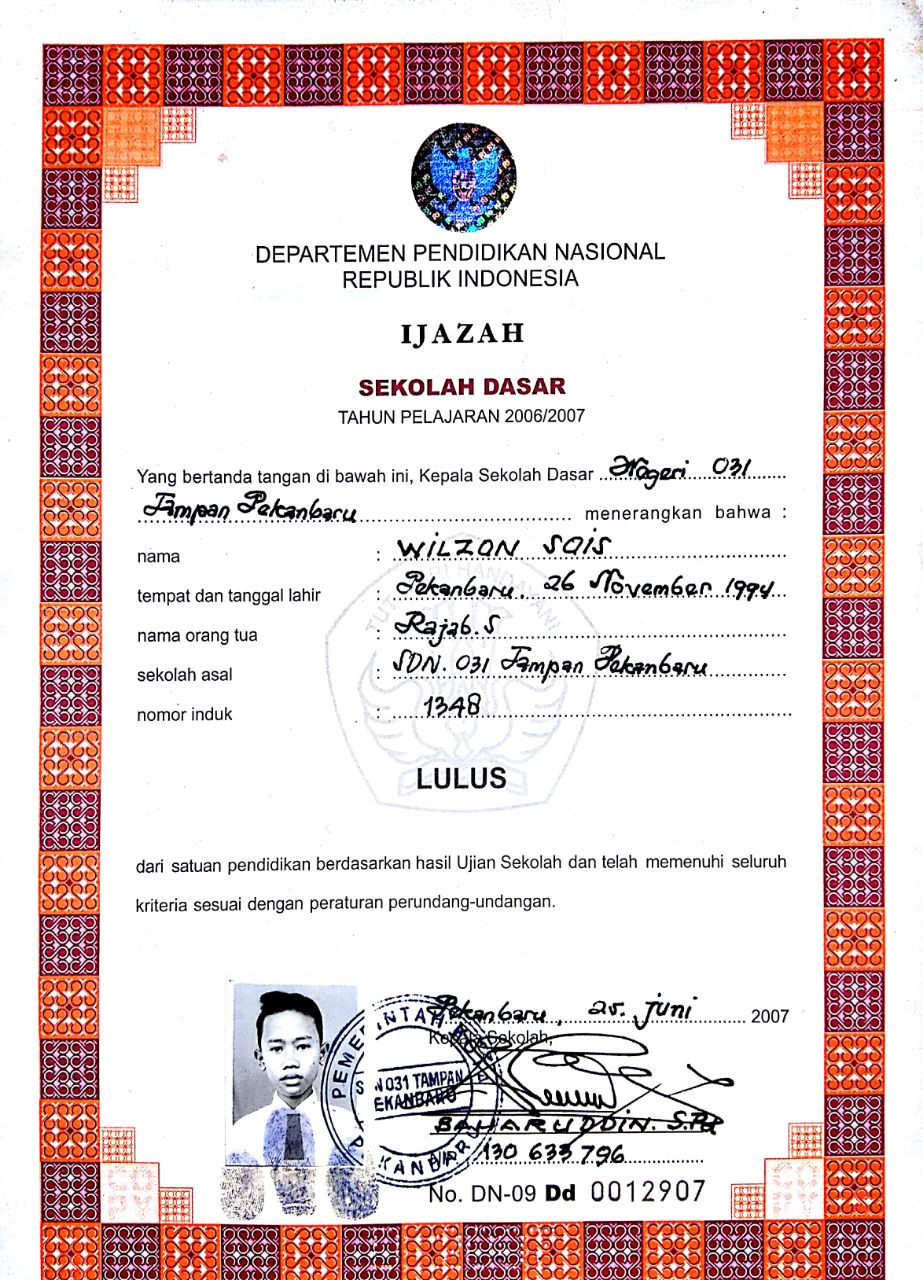 DEPARTEMEN PENDIDIKAN NASIONAL
REPUBLIK INDONESIA
IJAZAH
SEKOLAH DASAR
TAHUN PELAJARAN 2006/2007
Yang bertanda tangan di bawah ini, Kepala Sekolah Dasar Negeri 031
Tampan Pekanbaru menerangkan bahwa :
nama : WILZON SAIS
tempat dan tanggal lahir : Pekanbaru, 26 November 1994
nama orang tua : Rajab.S
sekolah asal : SDN. 031 Tampan Pekanbaru
nomor induk : 1348
LULUS
dari satuan pendidikan berdasarkan hasil Ujian Sekolah dan telah memenuhi seluruh
kriteria sesuai dengan peraturan perundang-undangan.
Pekanbaru, 25. Juni 2007
Kepala Sekolah,
N 031 TAMPAN
EKANBARU
BAHARUDDIN. S.Pd
130 633 796
No. DN-09 Dd 0012907